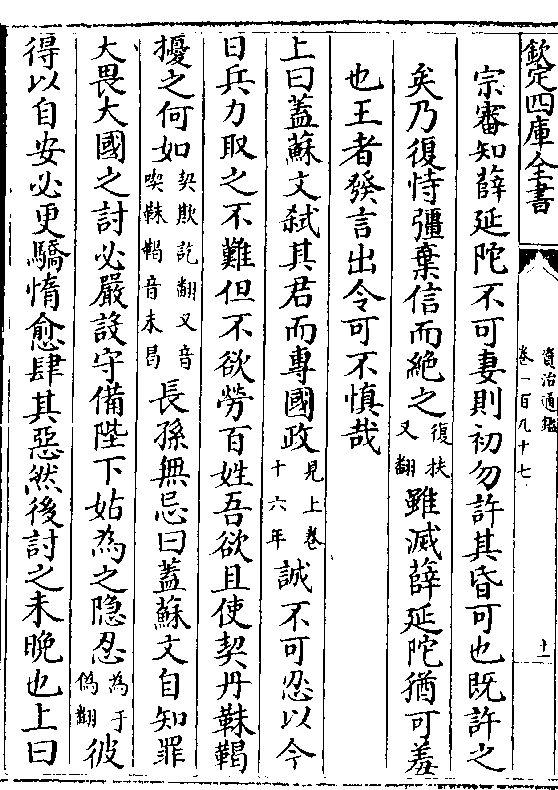 欽定四庫全書
資治通鑑
卷一百九十七
十一
宗審知薛延陀不可妻則初勿許其昏可也既許之
矣乃復恃彊棄信而絶之復扶又翻雖滅薛延陀猶可羞
也王者發言出令可不慎哉
上曰蓋蘇文弑其君而專國政見上卷十六年誠不可忍以今
日兵力取之不難但不欲勞百姓吾欲且使契丹靺鞨
擾之何如契欺訖翻又音喫靺鞨音末曷長孫無忌曰蓋蘇文自知罪
大畏大國之討必嚴設守備陛下姑為之隐忍為于偽翻彼
得以自安必更驕惰愈肆其惡然後討之未晚也上曰